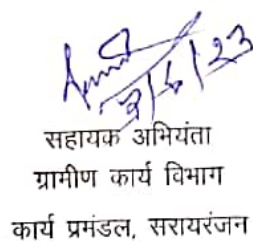 सहायक अभियंता
ग्रामीण कार्य विभाग
कार्य प्रमंडल, सरायरंजन